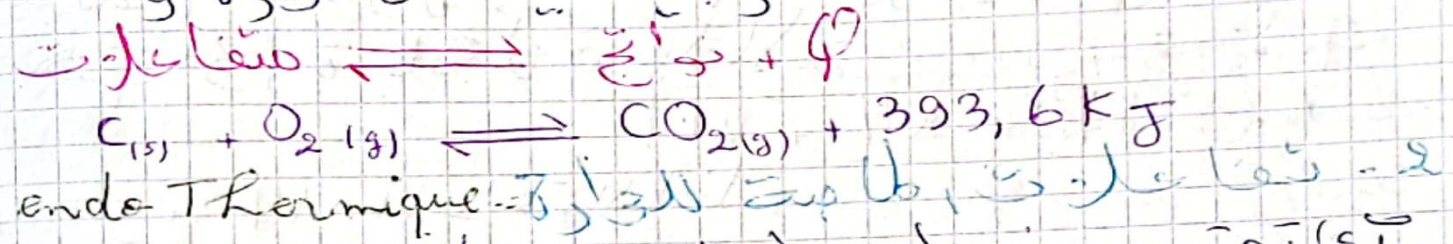 متفاعلات ⇌ نواتج + Q
C(s) + O2 (g) ⇌ CO2(g) + 393,6 KJ
2 - تفاعلات ماصة للحرارة - endo Thermique